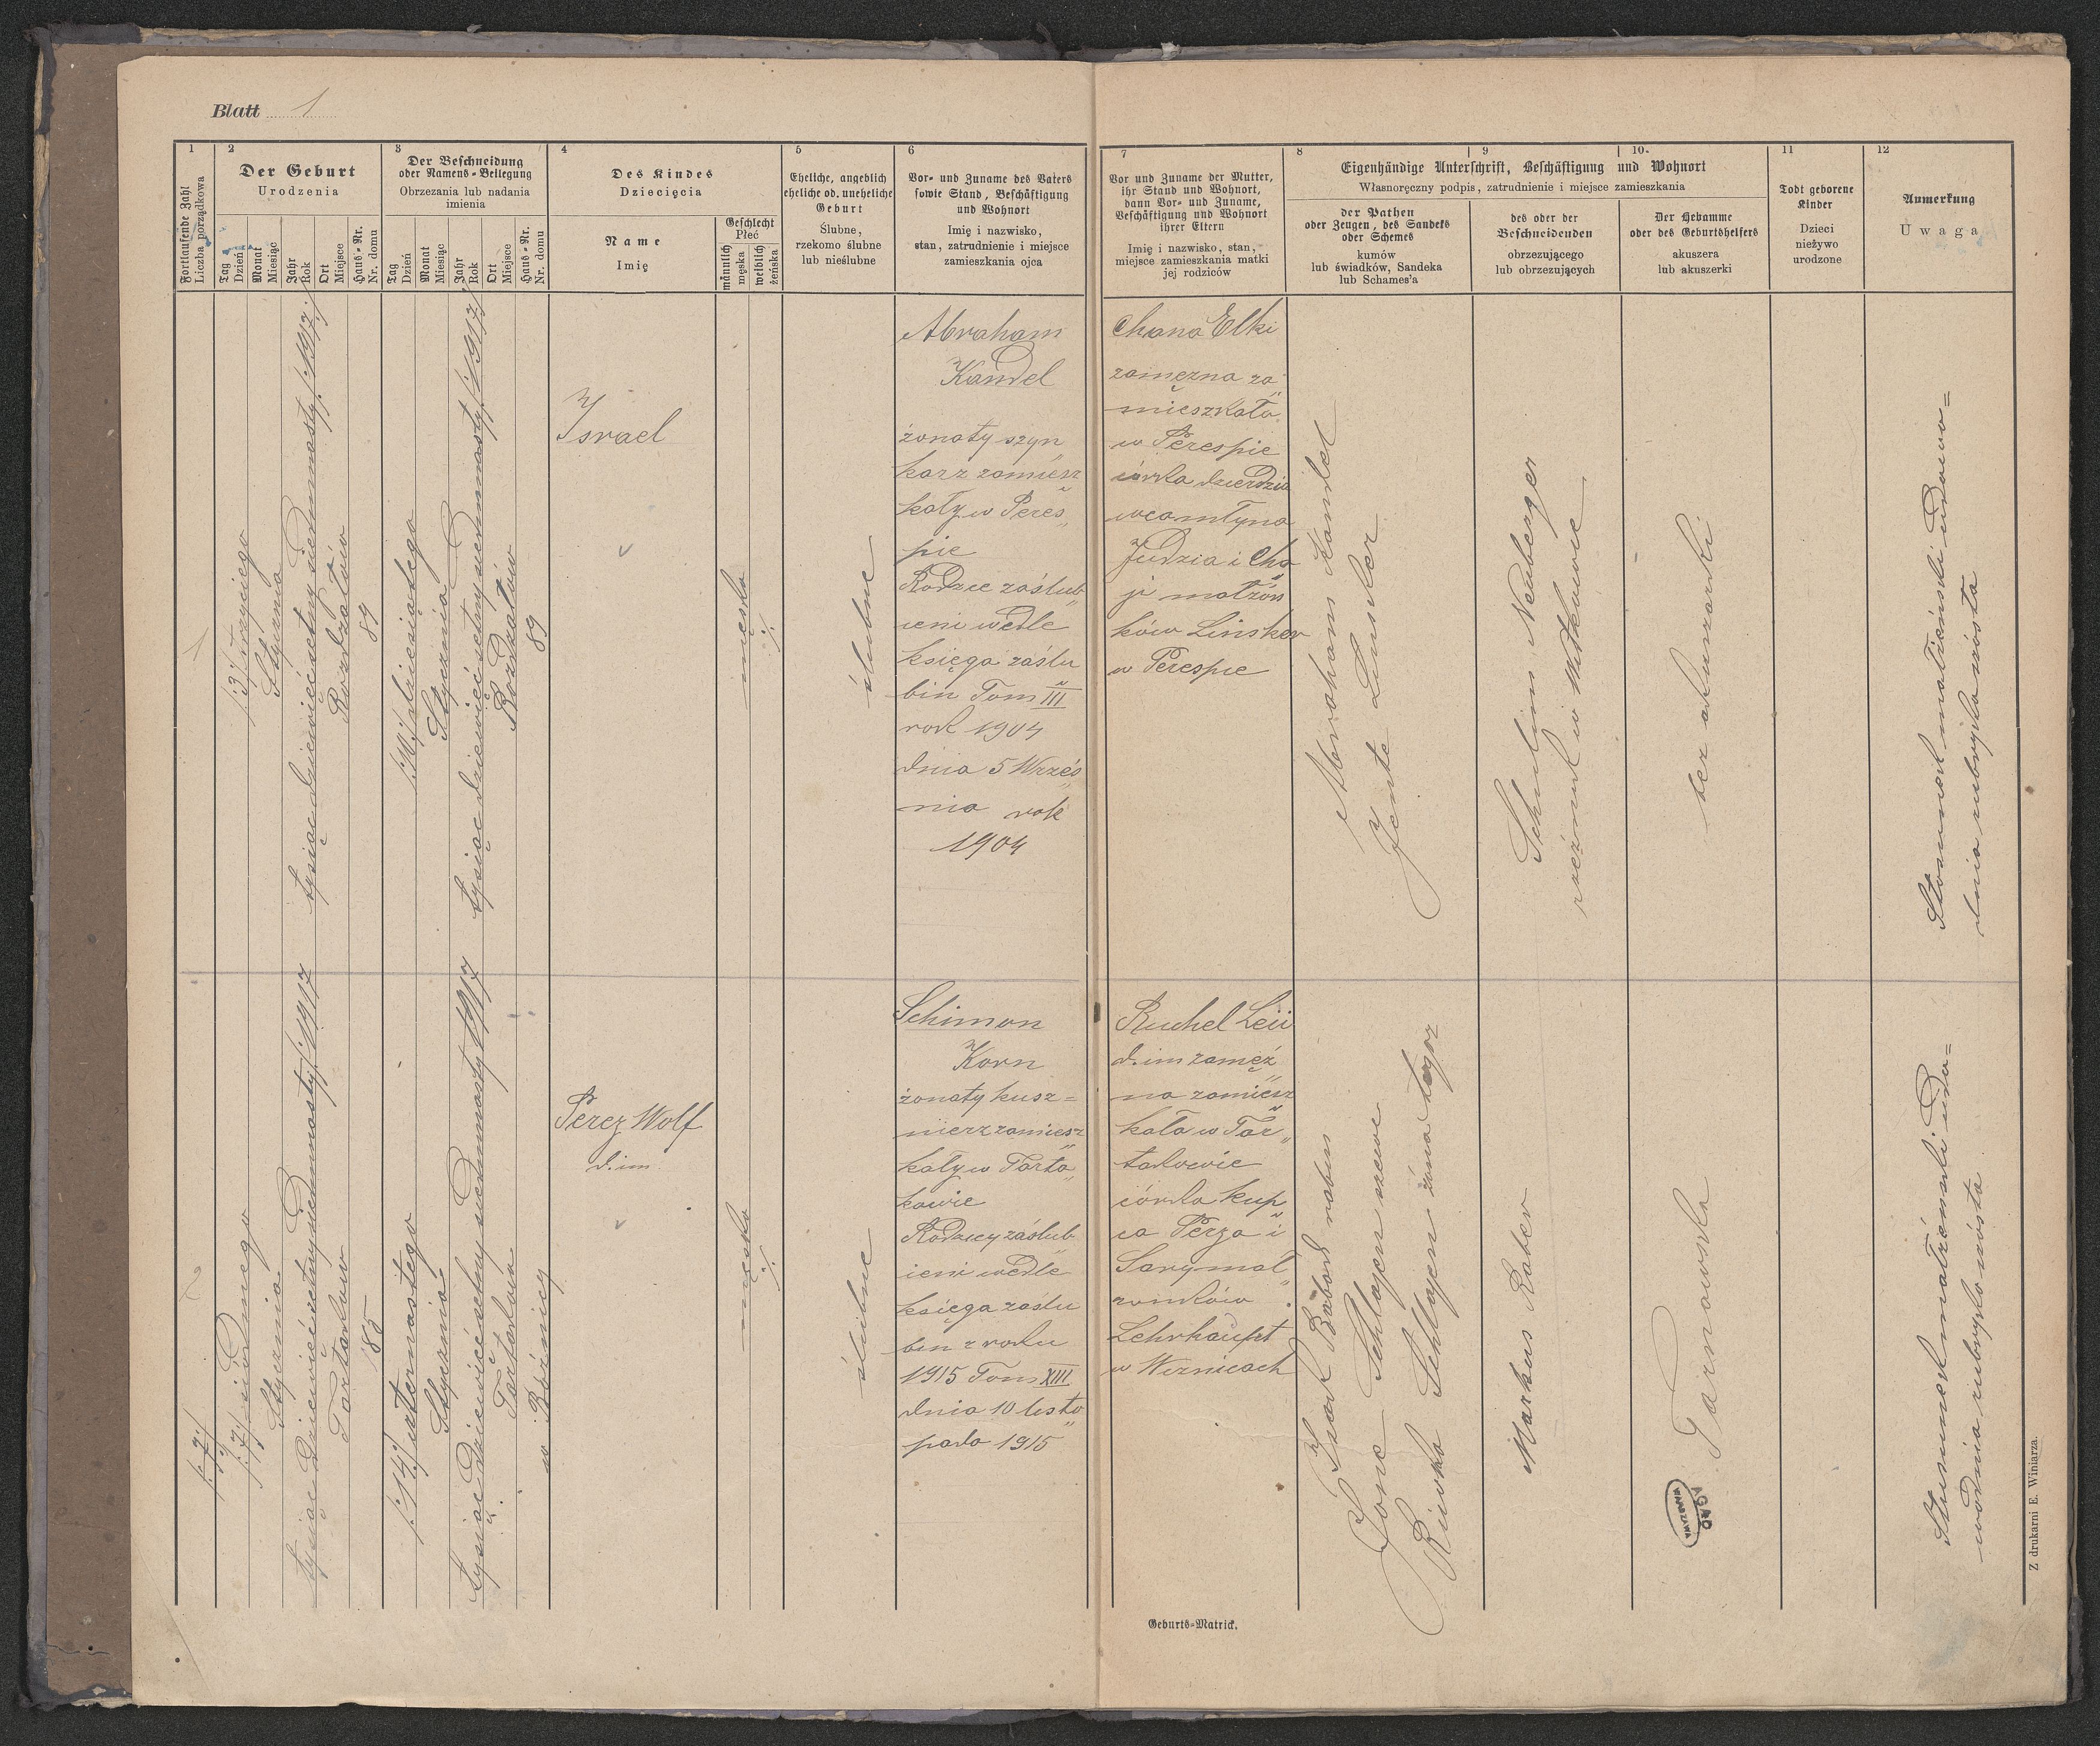 Blatt 1
1
Fortlaufende Zahl
Liczba porządkowa
2
Der Geburt
Urodzenia
Tag
Dzień
Monat
Miesiąc
Jahr
Rok
Ort
Miejsce
Haus-Nr.
Nr. domu
3
Der Beschneidung
oder Namens-Beilegung
Obrzezania lub nadania
imienia
Tag
Dzień
Monat
Miesiąc
Jahr
Rok
Ort
Miejsce
Haus-Nr.
Nr. domu
4
Des Kindes
Dziecięcia
Name
Imię
Geschlecht
Płeć
männlich
męska
weiblich
żeńska
5
Eheliche, angeblich
eheliche od. uneheliche
Geburt
Ślubne,
rzekomo ślubne
lub nieślubne
6
Vor- und Zuname des Vaters
sowie Stand, Beschäftigung
und Wohnort
Imię i nazwisko,
stan, zatrudnienie i miejsce
zamieszkania ojca
7
Vor und Zuname der Mutter,
ihr Stand und Wohnort,
dann Vor- und Zuname,
Beschäftigung und Wohnort
ihrer Eltern
Imię i nazwisko, stan,
miejsce zamieszkania matki
jej rodziców
8
9
10.
Eigenhändige Unterschrift, Beschäftigung und Wohnort
Własnoręczny podpis, zatrudnienie i miejsce zamieszkania
der Pathen
oder Zeugen, des Sandeks
oder Schemes
kumów
lub świadków, Sandeka
lub Schames'a
des oder der
Beschneidenden
obrzezującego
lub obrzezujących
Der Hebamme
oder des Geburtshelfers
akuszera
lub akuszerki
11
Todt geborene
Kinder
Dzieci
nieżywo
urodzone
12
Anmerkung
Uwaga
1
/:3:/ trzyciego
Stycznia
tysiąc dziewięćsetny siedemnasty /:1917:/
Rozdzałów
89
/:10:/ dziesiątego
Stycznia
tysiąc dziewięćsetny siedemnasty /:1917:/
Rozdzałów
89
Israel
męska
./.
ślubne
Abraham
Kandel
żonaty szyn
karz zamiesz
kały w Peres„
pie
Rodzice zaślub„
ieni wedle
księga zaślu
bin Tom III
rok 1904
dnia 5 Wrześ
nia rok
1904
Chana Elki
zamęzna za„
mieszkała
w Perespie
córka dzierdzia
wcamłyna
Judzia i Cha
ji małżon
ków Linsker
w Perespie
Abraham Kandel
Jente Linsker
Schulim Neuberger
rzeźnik w Witkowie
bez akuszerki
Stosunek małżeński udowo=
dnia rubryka szósta
2
/:7:/
/:7:/ siódmego
Stycznia
tysiąc dziewięćsetny siedemnasty /:1917
Tartaków
185
/:14:/ czternastego
Stycznia
tysiąc dziewięćsetny siedemnasty 1917
Tartaków
w Bóżnicy
Perez Wolf
d.im.
męska
./.
ślubne
Schimon
Korn
żonaty kusz=
nierz zamiesz
kały w Tarta„
kowie
Rodzicy zaślub
ieni wedle
księga zaślu
bin z roku
1915 Tom XIII
dnia 10 listo„
pada 1915
Ruchel Leii
d.im zamęż„
na zamiesz
kała w Tar„
takowie
córka kup
ca Perza i
Sary mał„
żonków
Lehrhaupt
w Wiznicach
Izak Babad rabin
Jone Schlajen szewc
Riwka Schlajen żona tegoz
Markus Raber
Tarnowska
Stosunek małżeński udo=
wodnia rubryka szósta
AGAD
WARSZAWA
Geburts-Matrick.
Z drukarni E. Winiarza.